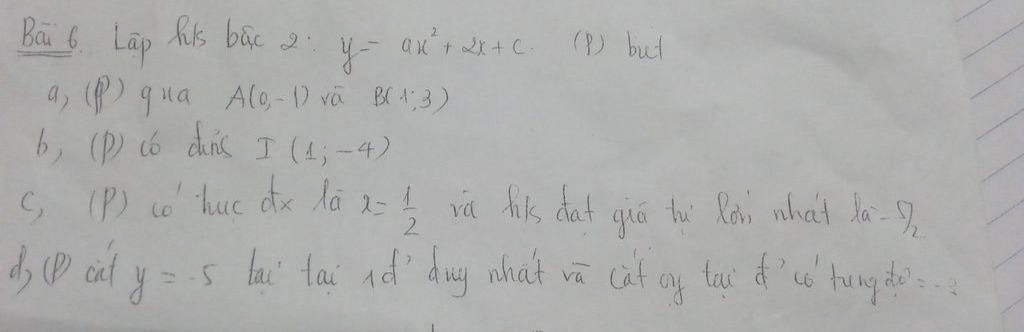 Bài 6. Lập h/s bậc 2: y = ax² + 2x + c. (P) biết
a, (P) qua A(0,-1) và B(1;3)
b, (P) có đỉnh I (1; -4)
c, (P) có trục đx là x = 1/2 và h/s đạt giá trị lớn nhất là -5/2
d, (P) cắt y = -5 tại tại 1 đ' duy nhất và cắt oy tại đ' có tung độ = -